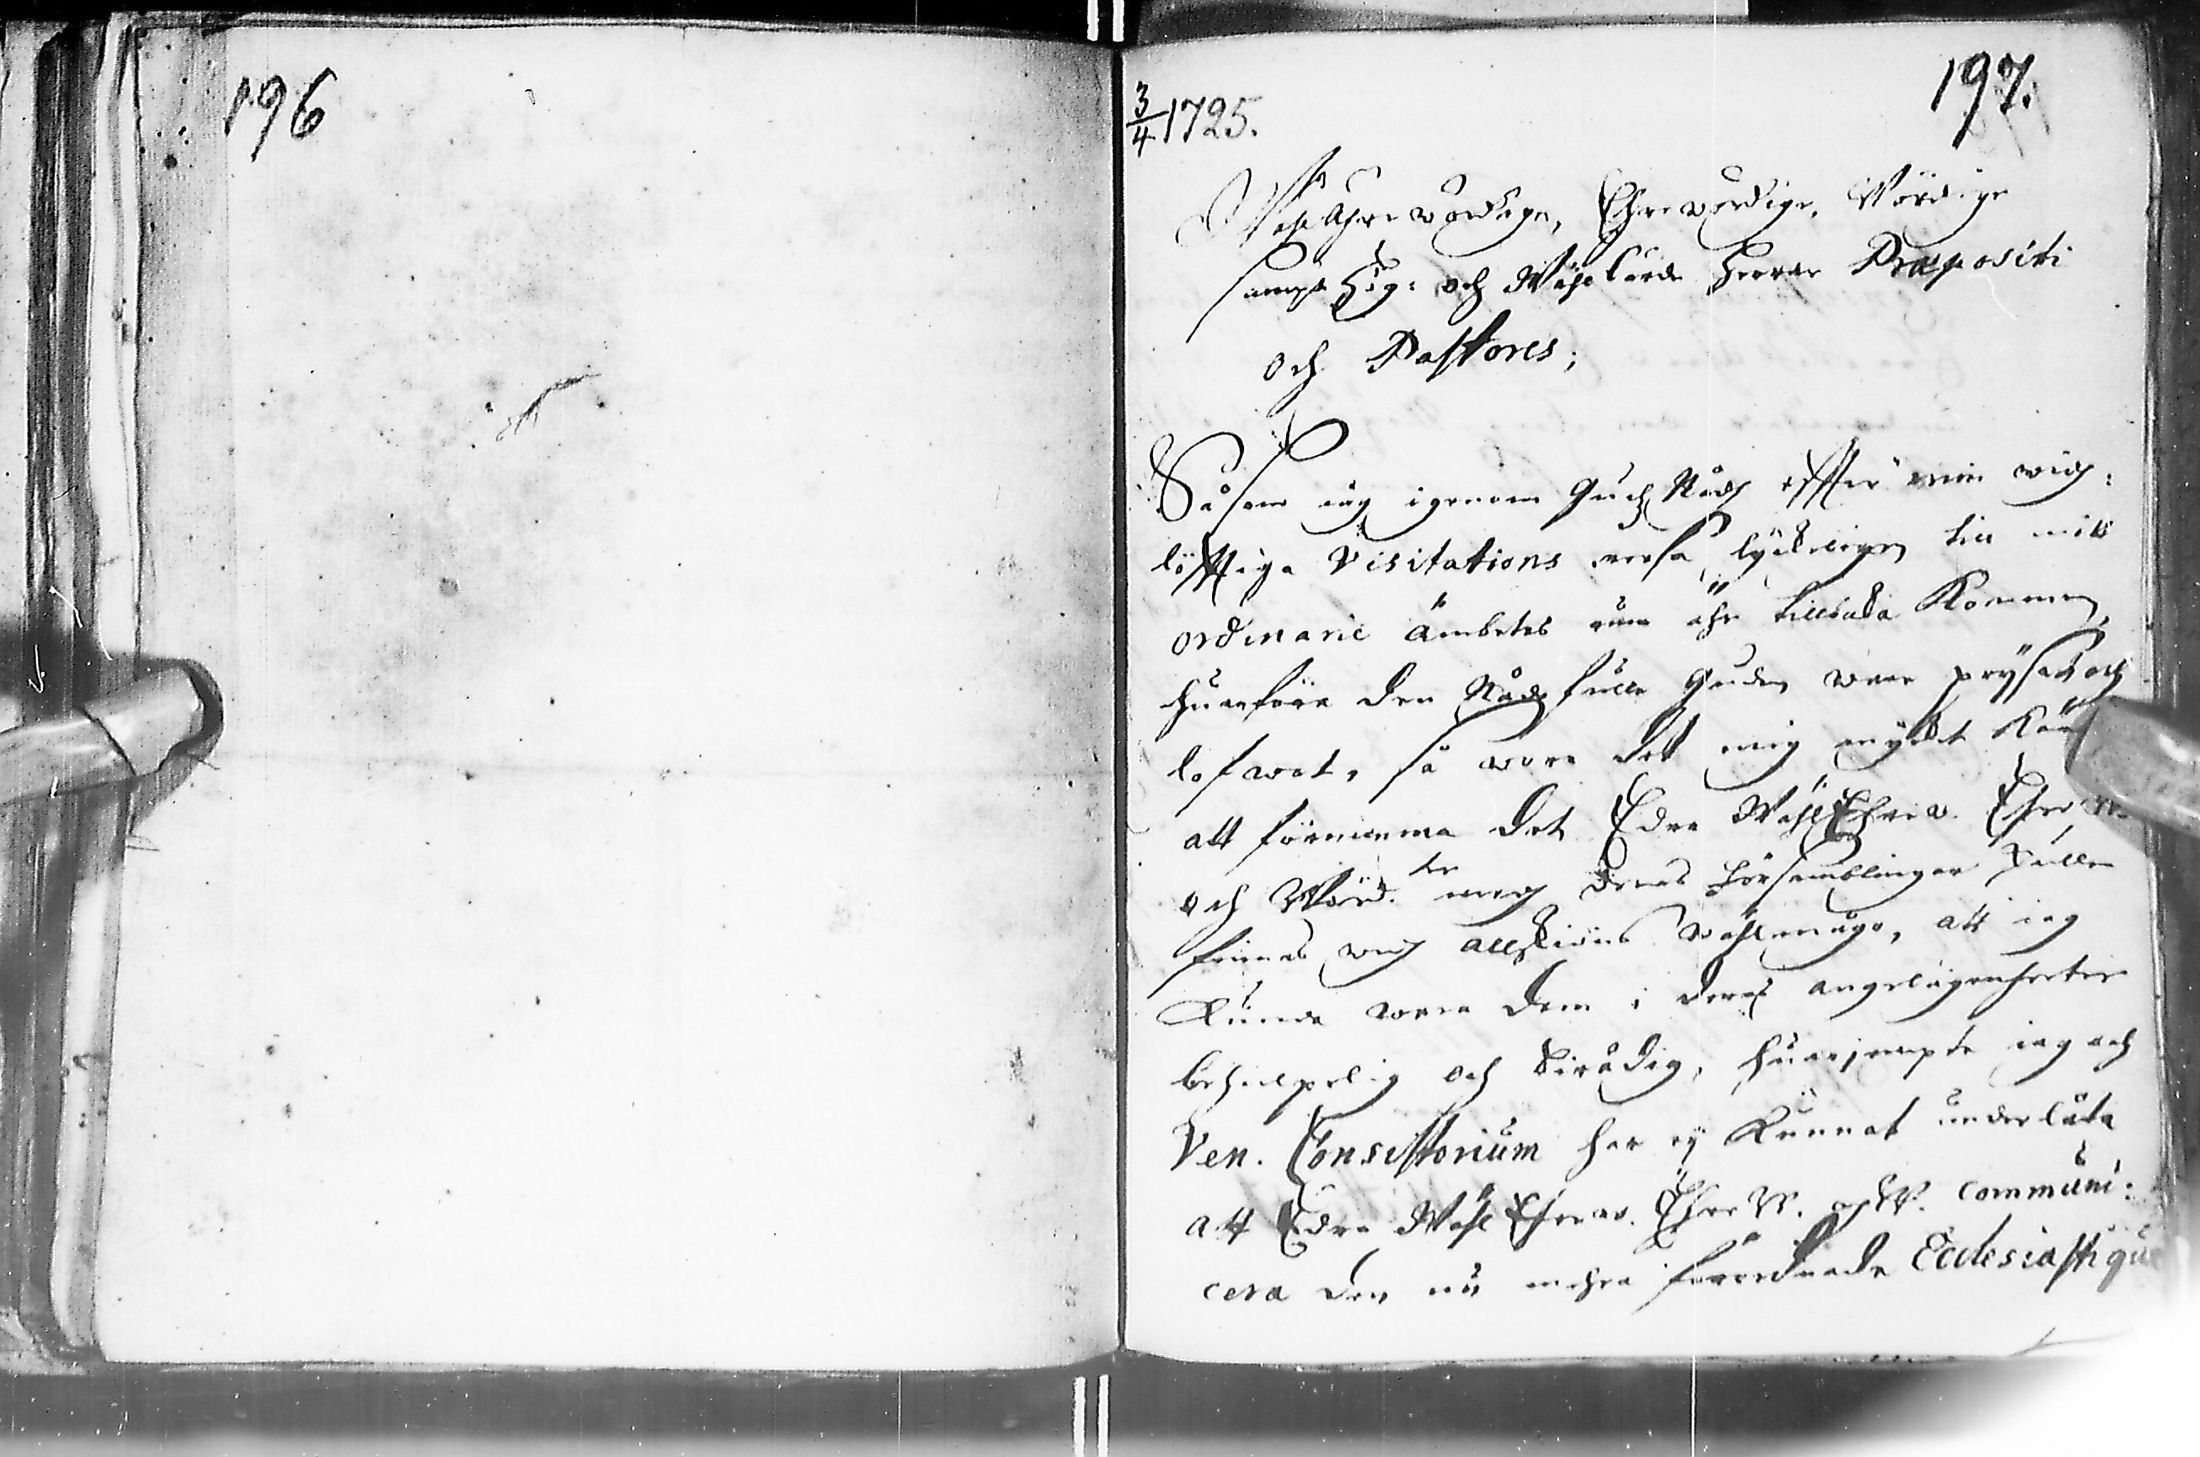 196
197.
3/4 1725.
Wählährewördige, Ehrewördige, Wördige
sampt Hög: och Wählärde Herrar Præpositi
och Pastores;
Såsom iag igenom Gudz Nåd effter min wid:
löfftiga Visitations resa lyckeligen till mitt
ordinarie ämbetes rum ähr tillbaka kommen,
huarföre den Nådefulle Guden ware prÿsat och
lofwat, så wore det mig mÿcket
att förnimma det Edre WählEhrew. Ehrew.
och Wörd.r med deras Församblingar skulle
finnas wid allskiöns wählmåga, att iag
kunde wara dem i deras angelägenheeter
behielpelig och birådig, huarjempte iag och
Ven. Consistorium har eÿ kunnat underlåta
att Edre WählEhrew. EhreW. och W. communi:
cera den nu mehra förordnade Ecclesiastique